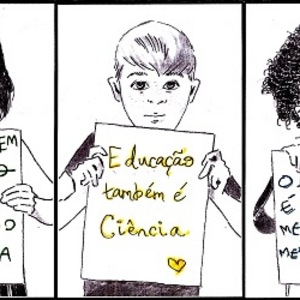 EM
O
A
Educação
também é
Ciência
U
O
É
ME
ME